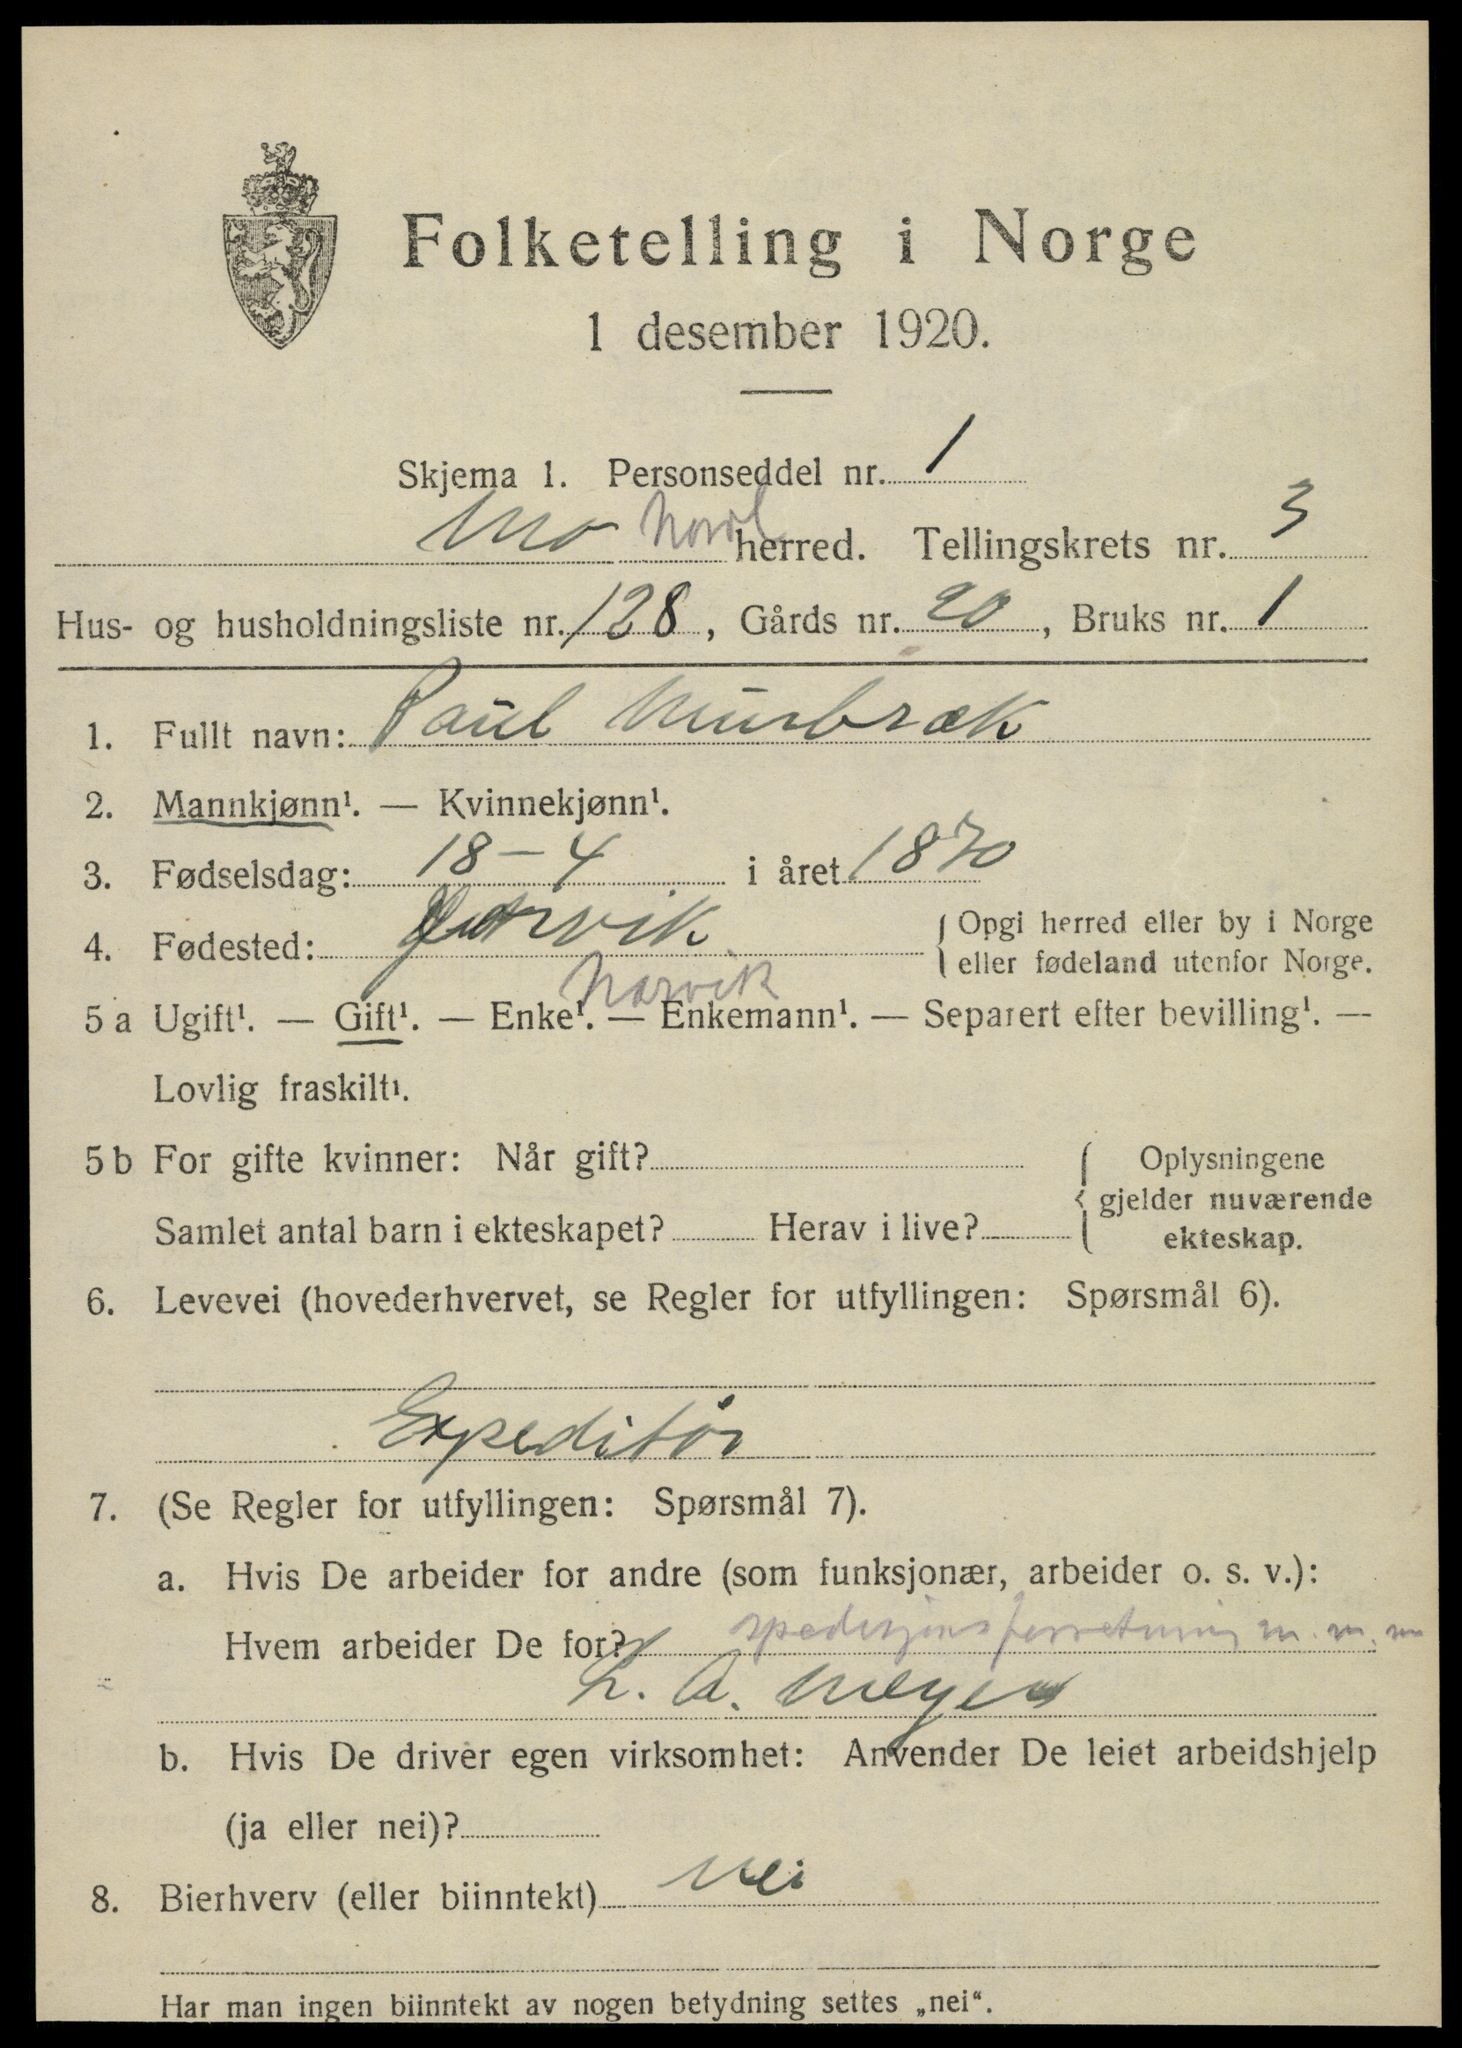 Folketelling i Norge
1 desember 1920.
Skjema 1. Personseddel nr. 1
Mo Nordl herred. Tellingskrets nr. 3
Hus- og husholdningsliste nr. 128, Gårds nr. 20, Bruks nr. 1
1. Fullt navn: Paul Murbræk
2. Mannkjønn¹. — Kvinnekjønn¹.
3. Fødselsdag: 18-4 i året 1870
4. Fødested: Narvik
{Opgi herred eller by i Norge
eller fødeland utenfor Norge.
Narvik
5 a Ugift¹. — Gift¹. — Enke¹. — Enkemann¹. — Separert efter bevilling¹. —
Lovlig fraskilt¹.
5 b For gifte kvinner: Når gift?
Samlet antal barn i ekteskapet? Herav i live?
{Oplysningene
gjelder nuværende
ekteskap.
6. Levevei (hovederhvervet, se Regler for utfyllingen: Spørsmål 6).
Expeditør
7. (Se Regler for utfyllingen: Spørsmål 7).
a. Hvis De arbeider for andre (som funksjonær, arbeider o. s. v.):
Hvem arbeider De for? spedisjonsforretning m. m. m
L. A. Meyer
b. Hvis De driver egen virksomhet: Anvender De leiet arbeidshjelp
(ja eller nei)?
8. Bierhverv (eller biinntekt) Nei
Har man ingen biinntekt av nogen betydning settes „nei“.